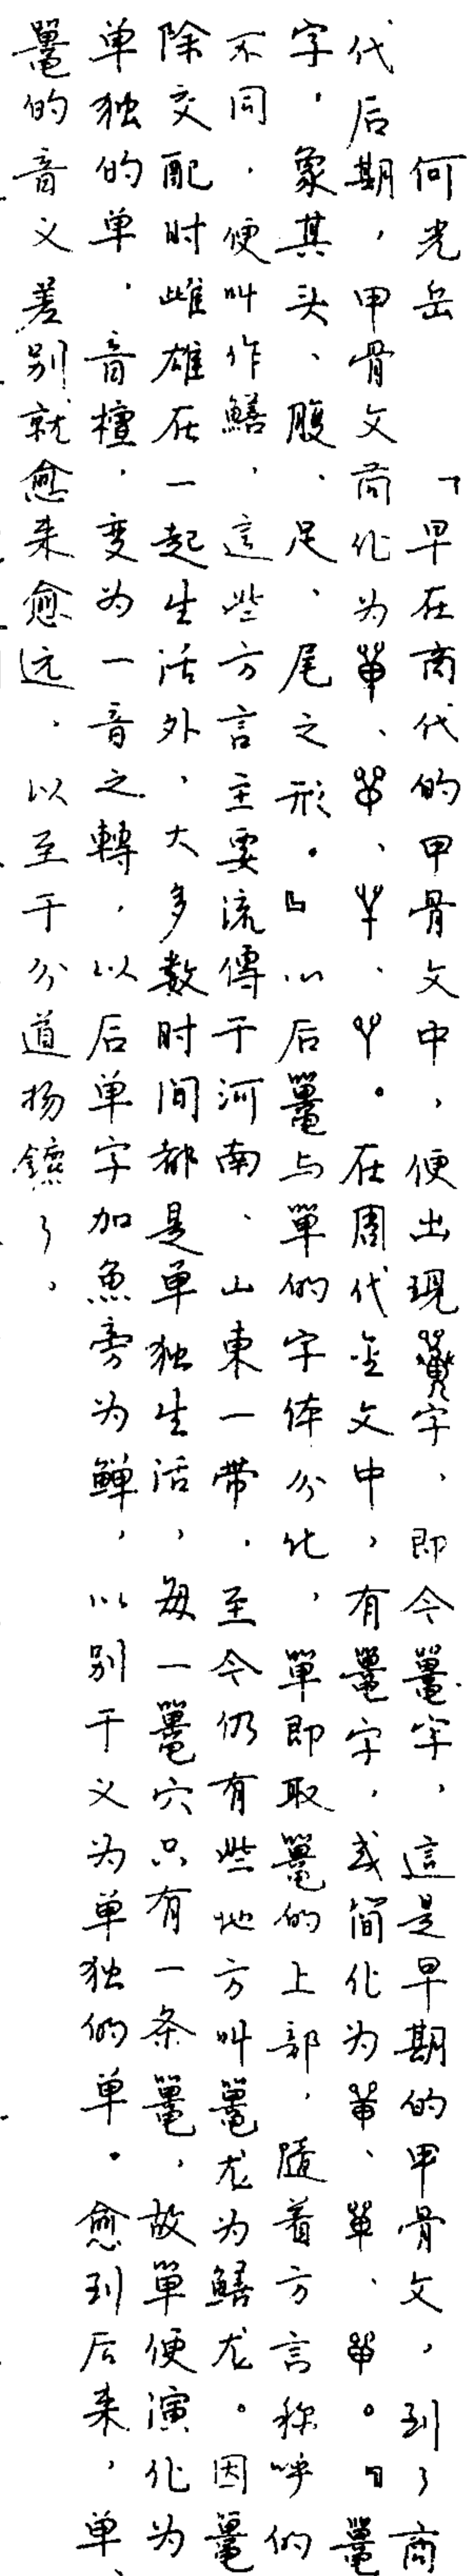 何光岳 「早在商代的甲骨文中，便出現字，即今鼉字，這是早期的甲骨文，到了商
代后期，甲骨文简化为、、、。在周代金文中，有鼉字，或簡化为、、。『鼉
字，象其头、腹、足、尾之形。』以后鼉与單的字体分化，單即取鼉的上部，隨着方言称呼的
不同，便叫作鱔，這些方言主要流傳于河南、山東一带，至今仍有些地方叫鼉龙为鱔龙。因鼉
除交配时雌雄在一起生活外，大多数时间都是单独生活，每一鼉穴只有一条鼉，故單便演化为
单独的单，音檀，变为一音之轉，以后单字加魚旁为鱓，以别于义为单独的单。愈到后来，单
鼉的音义差别就愈来愈远，以至于分道扬鑣了，